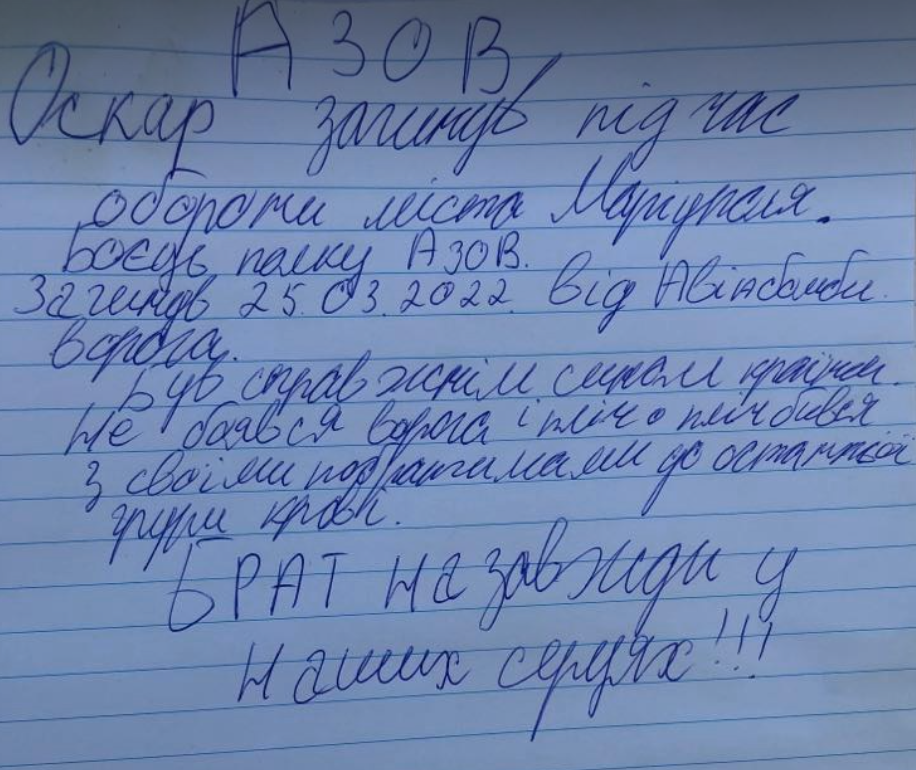 АЗОВ
Оскар загинув під час
оборони міста Маріуполя.
Боєць полку АЗОВ.
Загинув 25.03.2022 від Авіабомби
ворога.
Був справжнім сином країни.
Не боявся ворога і пліч о пліч бився
з своїми побратимами до останньої
групи крові.
БРАТ назавжди у
наших серцях!!!